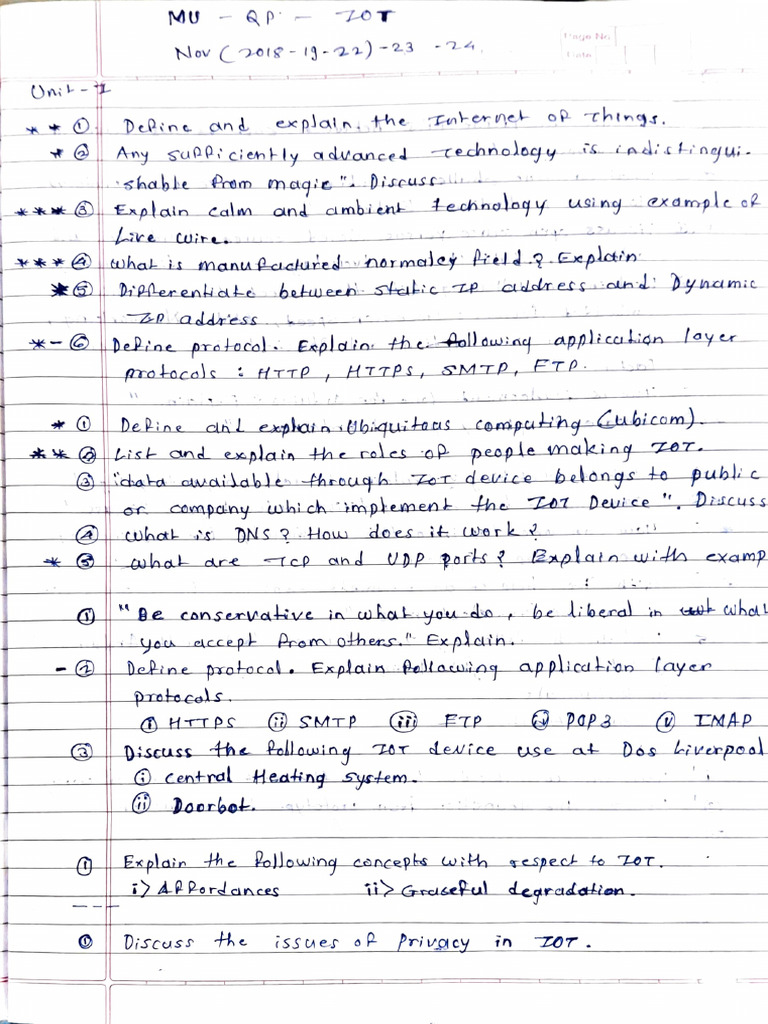 MU - QP - IOT
Page No.
Date
Nov (2018-19-22)-23 -24.
Unit-I
** ① Define and explain the Internet of Things.
* ② Any sufficiently advanced technology is indistingui-
shable from magic". Discuss
*** ③ Explain calm and ambient technology using example of
Live wire.
*** ④ What is manufactured normalcy field? Explain
* ⑤ Differentiate between static IP address and Dynamic
IP address
* - ⑥ Define protocol. Explain the following application layer
protocols : HTTP, HTTPS, SMTP, FTP.
* ① Define and explain Ubiquitous computing (ubicom).
** ② List and explain the roles of people making IOT.
③ "data available through IOT device belongs to public
or company which implement the IOT Device". Discuss
④ What is DNS? How does it work?
* ⑤ What are TCP and UDP ports? Explain with examp
① "Be conservative in what you do, be liberal in what
you accept from others." Explain.
- ② Define protocol. Explain following application layer
protocols.
ⓘ HTTPS ⓘⓘ SMTP ⓘⓘⓘ FTP ⓘⓥ POP3 ⓥ IMAP
③ Discuss the following IOT device use at Dos Liverpool
ⓘ Central Heating system.
ⓘⓘ Doorbot.
① Explain the following concepts with respect to IOT.
i> Affordances ii> Graseful degradation.
---
① Discuss the issues of privacy in IOT.